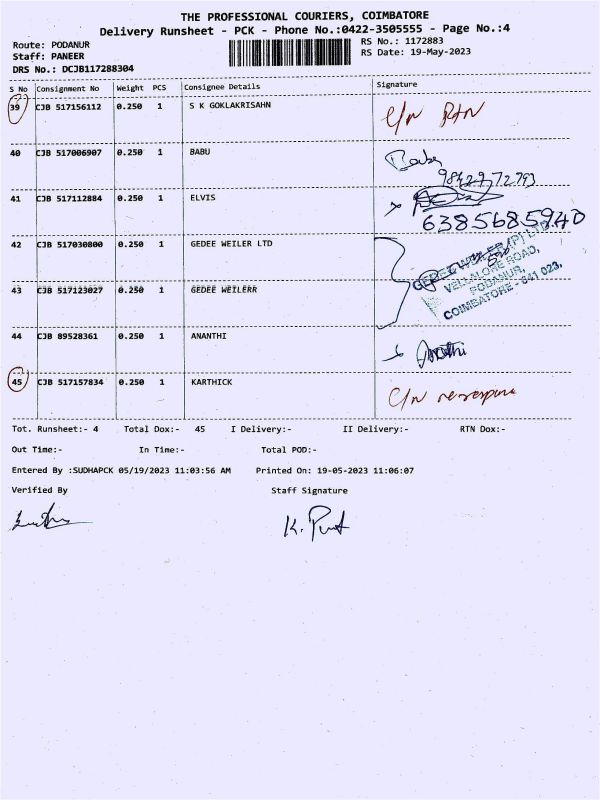 THE PROFESSIONAL COURIERS, COIMBATORE
Delivery Runsheet - PCK - Phone No.:0422-3505555 - Page No.:4
Route: PODANUR
RS No.: 1172883
Staff: PANEER
RS Date: 19-May-2023
DRS No.: DCJB117288304
S No Consignment No Weight PCS Consignee Details Signature
39 CJB 517156112 0.250 1 S K GOKLAKRISAHN C/n RTN
40 CJB 517006907 0.250 1 BABU Babu
9842972793
41 CJB 517112884 0.250 1 ELVIS
6385685940
42 CJB 517030800 0.250 1 GEDEE WEILER LTD
GEDEE WEILER (P) LTD
VELLALORE ROAD,
PODANUR,
COIMBATORE - 641 023.
43 CJB 517123027 0.250 1 GEDEE WEILERR
44 CJB 89528361 0.250 1 ANANTHI
45 CJB 517157834 0.250 1 KARTHICK C/n
Tot. Runsheet:- 4 Total Dox:- 45 I Delivery:- II Delivery:- RTN Dox:-
Out Time:- In Time:- Total POD:-
Entered By :SUDHAPCK 05/19/2023 11:03:56 AM Printed On: 19-05-2023 11:06:07
Verified By Staff Signature